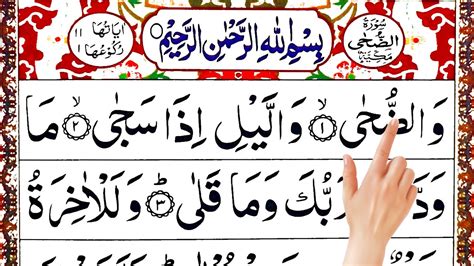 سُوْرَةُ الضُّحٰى مَكِّيَّةٌ
بِسْمِ اللهِ الرَّحْمٰنِ الرَّحِيْمِ
اٰيَاتُهَا ١١
رُكُوْعُهَا ١
وَالضُّحٰى ۙ ١ وَالَّيْلِ اِذَا سَجٰى ۙ ٢ مَا
رَبُّكَ وَمَا قَلٰى ؕ ٣ وَلَلْاٰخِرَةُ